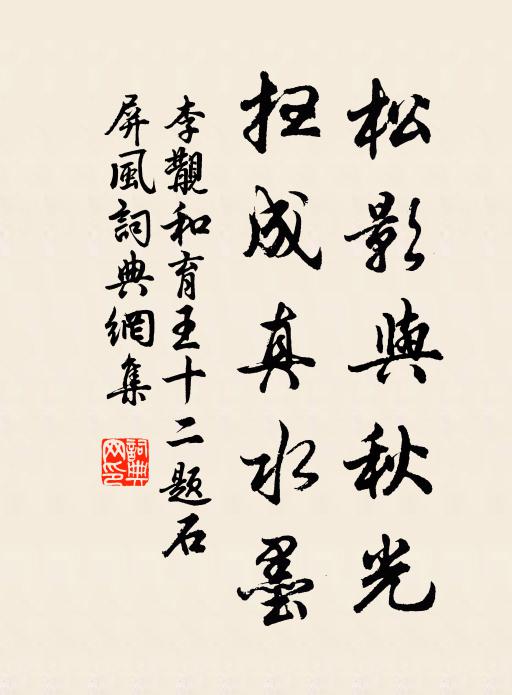 松影與秋光
扫成真水墨
李覯和育王十二题石
屏風詞典網集
詞典
网印